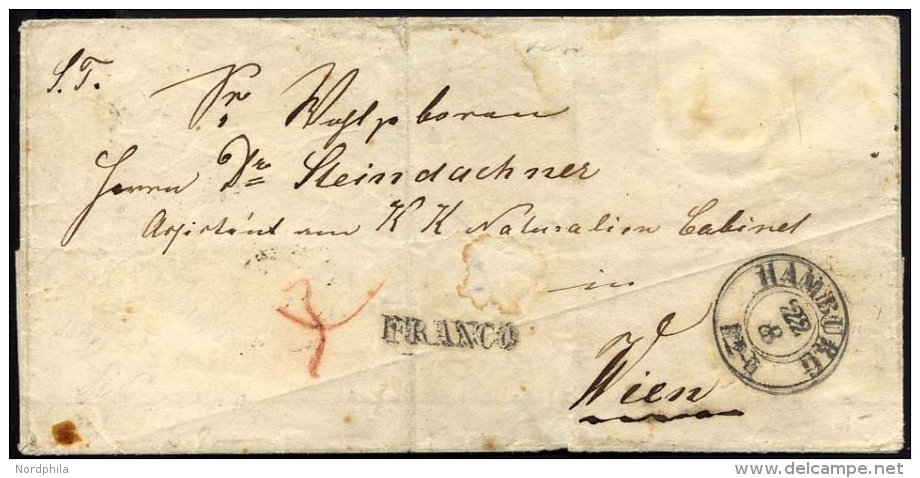 S. T.
Sr. Wohlgeboren
Herrn Dr Steindachner
Assistent am K K Naturalien Cabinet
in
HAMBURG
22
8
FRANCO
Wien
Nordphila
delcampe.net